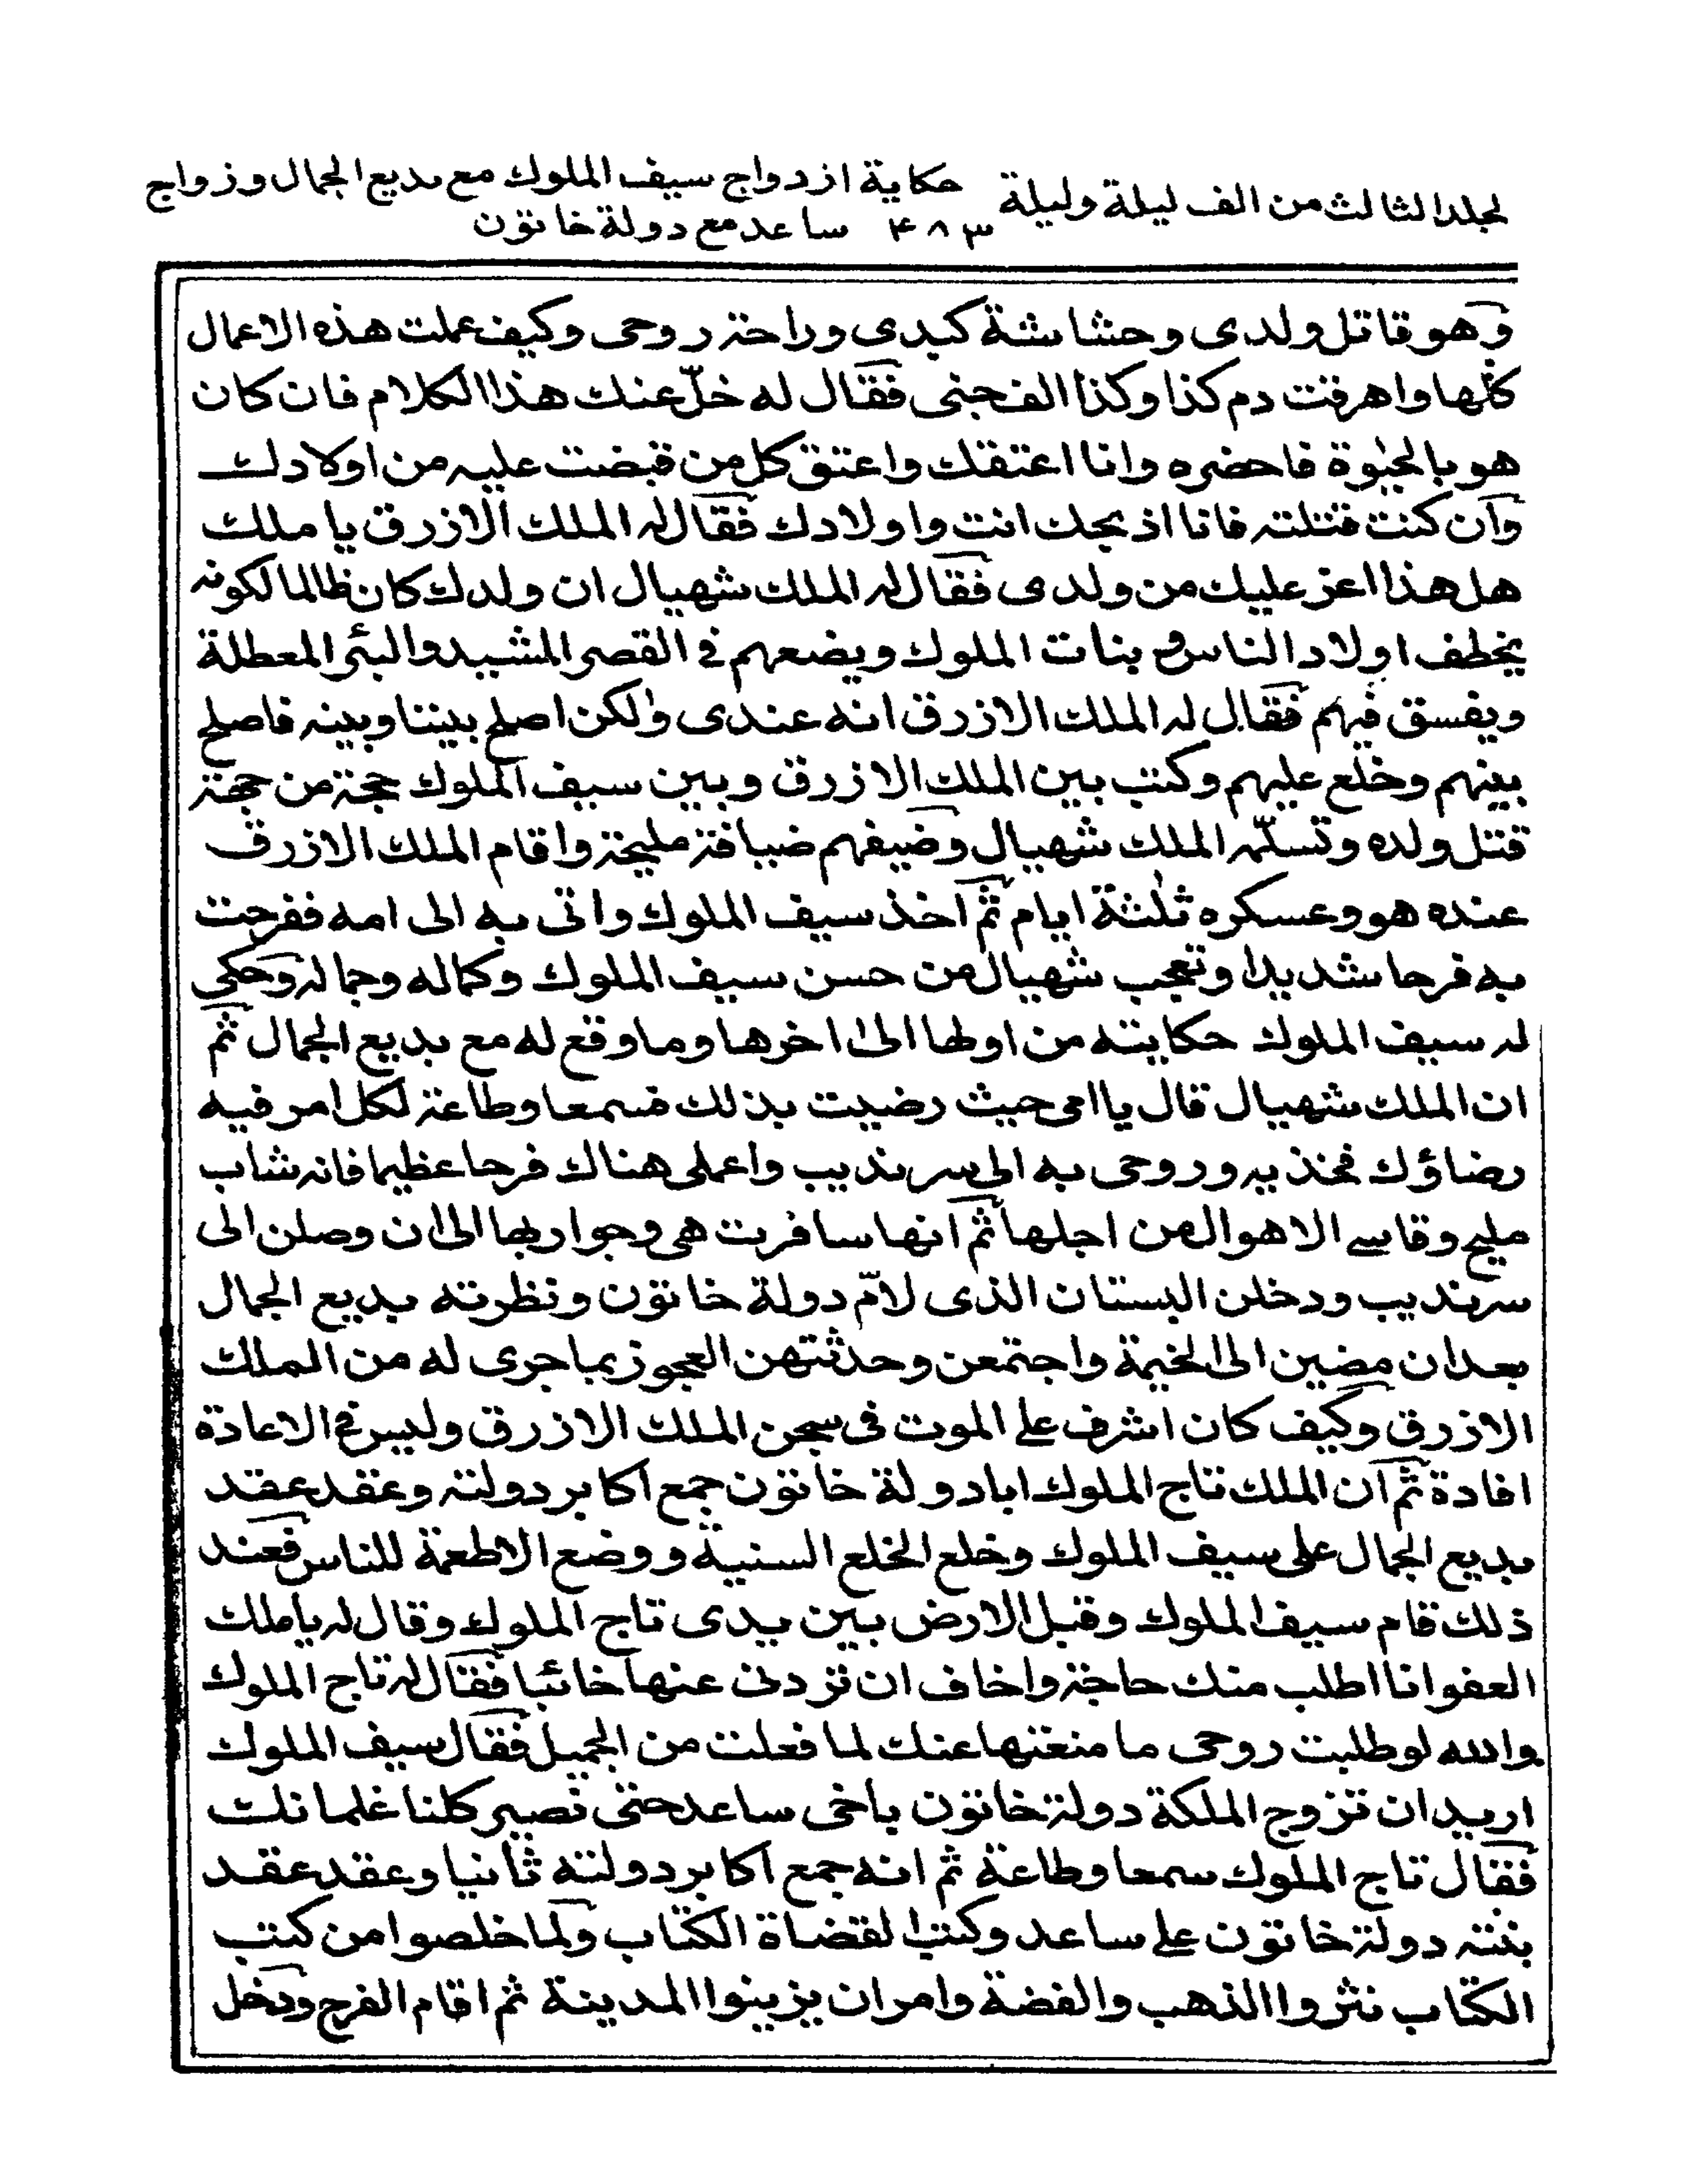 لجلد الثالث من الف ليلة وليلة
حكاية ازدواج سيف الملوك مع بديع الجمال وزواج
۴۸۳ ساعد مع دولة خاتون
وهو قاتل ولدى وحشاشة كبدى وراحة روحى وكيف عملت هذه الاعمال
كلها واهرقت دم كذا وكذا الف جنى فقال له خلّ عنك هذا الكلام فان كان
هو بالحيٰوة فاحضره وانا اعتقك واعتق كل من قبضت عليه من اولادك
وان كنت قتلته فانا اذبحك انت واولادك فقال له الملك الازرق يا ملك
هل هذا اعز عليك من ولدى فقال له الملك شهيال ان ولدك كان ظالما لكونه
يخطف اولاد الناس و بنات الملوك ويضعهم في القصر المشيد والبئر المعطلة
ويفسق فيهم فقال له الملك الازرق انه عندى ولٰكن اصلح بيننا وبينه فاصلح
بينهم وخلع عليهم وكتب بين الملك الازرق وبين سيف الملوك حجة من جهة
قتل ولده وتسلّمه الملك شهيال وضيفهم ضيافة مليحة واقام الملك الازرق
عنده هو وعسكره ثلٰثة ايام ثم اخذ سيف الملوك واتى به الى امه ففرحت
به فرحا شديدا وتعجب شهيال من حسن سيف الملوك وكماله وجماله وحكى
له سيف الملوك حكايته من اولها الىٰ اخرها وما وقع له مع بديع الجمال ثم
ان الملك شهيال قال يا امى حيث رضيت بذلك فسمعا وطاعة لكل امر فيه
رضاؤك فخذيه وروحى به الى سرنديب واعملى هناك فرحا عظيما فانه شاب
مليح وقاسى الاهوال من اجلها ثم انها سافرت هى وجواريها الى ان وصلن الى
سرنديب ودخلن البستان الذى لامّ دولة خاتون ونظرته بديع الجمال
بعد ان مضين الى الخيمة واجتمعن وحدثتهن العجوز بما جرى له من الملك
الازرق وكيف كان اشرف على الموت فى سجن الملك الازرق وليس فى الاعادة
افادة ثم ان الملك تاج الملوك ابا دولة خاتون جمع اكابر دولته وعقد عقد
بديع الجمال على سيف الملوك وخلع الخلع السنية ووضع الاطعمة للناس فعند
ذلك قام سيف الملوك وقبل الارض بين يدى تاج الملوك وقال له يا ملك
العفو انا اطلب منك حاجة واخاف ان تردنى عنها خائبا فقال له تاج الملوك
والله لو طلبت روحى ما منعتها عنك لما فعلت من الجميل فقال سيف الملوك
اريد ان تزوج الملكة دولة خاتون باخى ساعد حتى نصير كلنا غلمانك
فقال تاج الملوك سمعا وطاعة ثم انه جمع اكابر دولته ثانيا وعقد عقد
بنته دولة خاتون على ساعد وكتب القضاة الكتاب ولما خلصوا من كتب
الكتاب نثروا الذهب والفضة وامر ان يزينوا المدينة ثم اقام الفرح ودخل